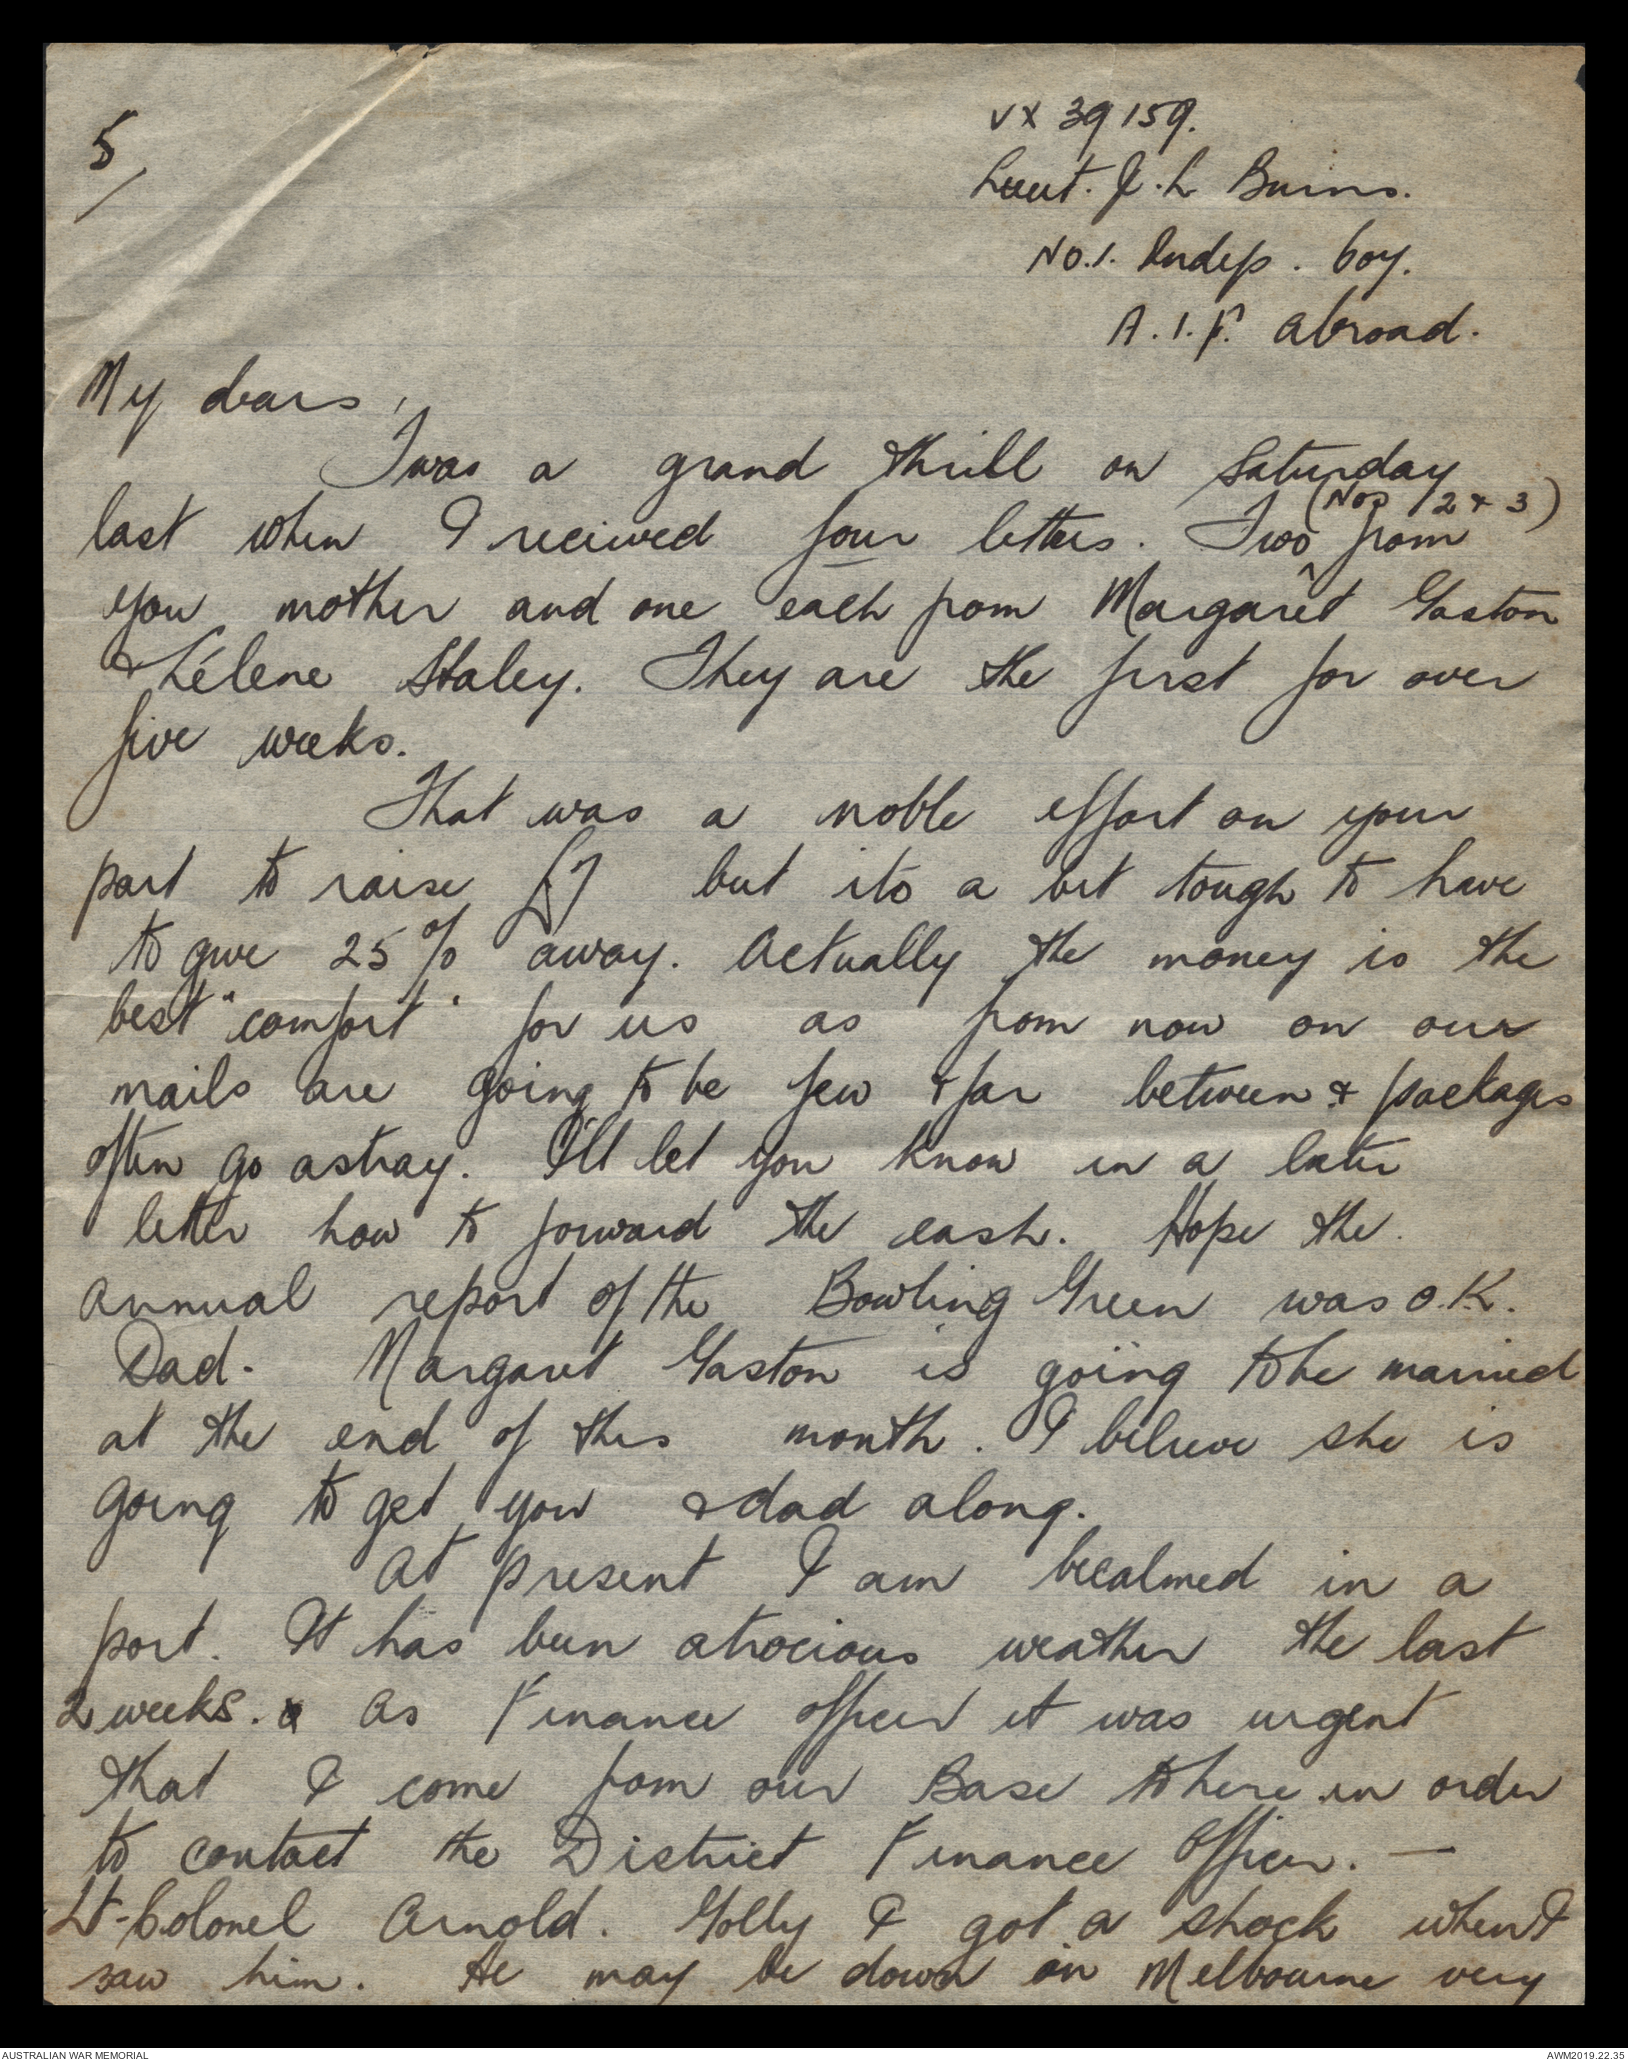 5/
VX 39159.
Lieut. J. L Burns.
No.1. Indep. Coy.
A.I.F. abroad.
My dears,
Twas a grand thrill on Saturday
last when I received four letters. Two (Nos 2 & 3) from
you mother and one each from Margaret Gaston
& Lélene Staley. They are the first for over
five weeks.
That was a noble effort on your
part to raise £7 but its a bit tough to have
to give 25% away. Actually the money is the
best "comfort" for us as from now on our
mails are going to be few & far between & packages
often go astray. I'll let you know in a later
letter how to forward the cash. Hope the
annual report of the Bowling Green was O.K.
Dad. Margaret Gaston is going to be married
at the end of this month. I believe she is
going to get you & dad along.
At present I am becalmed in a
port. It has been atrocious weather the last
2 weeks. As Finance officer it was urgent
that I come from our Base to here in order
to contact the District Finance Officer. —
Lt-Colonel Arnold. Golly I got a shock when I
saw him. He may be down in Melbourne very
AUSTRALIAN WAR MEMORIAL
AWM2019.22.35